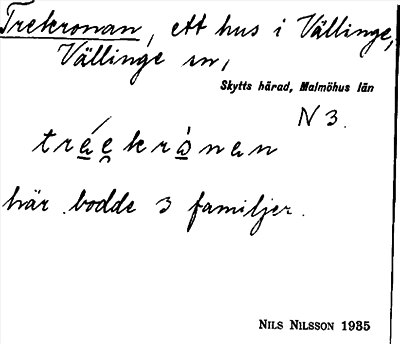 Trekronan, ett hus i Vällinge,
Vällinge sn,
Skytts härad, Malmöhus län
N 3.
träekrånan
här bodde 3 familjer.
NILS NILSSON 1935